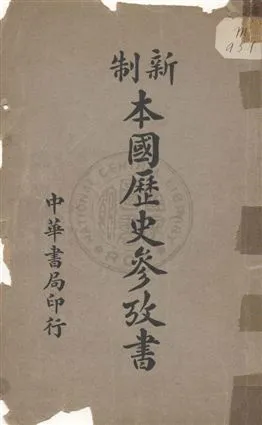 新制
本國歷史參攷書
中華書局印行
NATIONAL CENTRAL LIBRARY